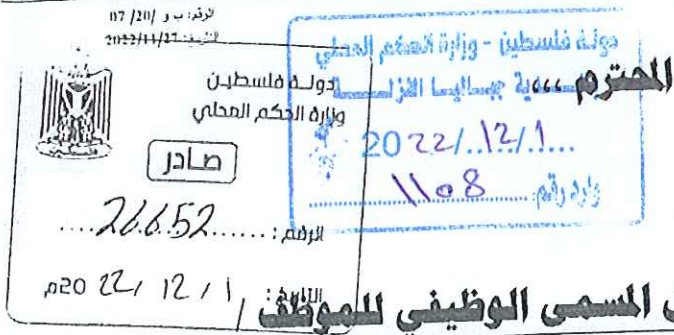 الرقم: ب و /20/ 07
التاريخ: 2022/11/27
دولة فلسطين - وزارة الحكم المحلي
بلدية جباليا النزلة
2022/12/1
وارد رقم: 1108
المحترم ،،،،
دولة فلسطين
وزارة الحكم المحلي
صادر
الرقم: 26652
التاريخ: 1 / 12 / 2022م
المسمى الوظيفي للموظف /